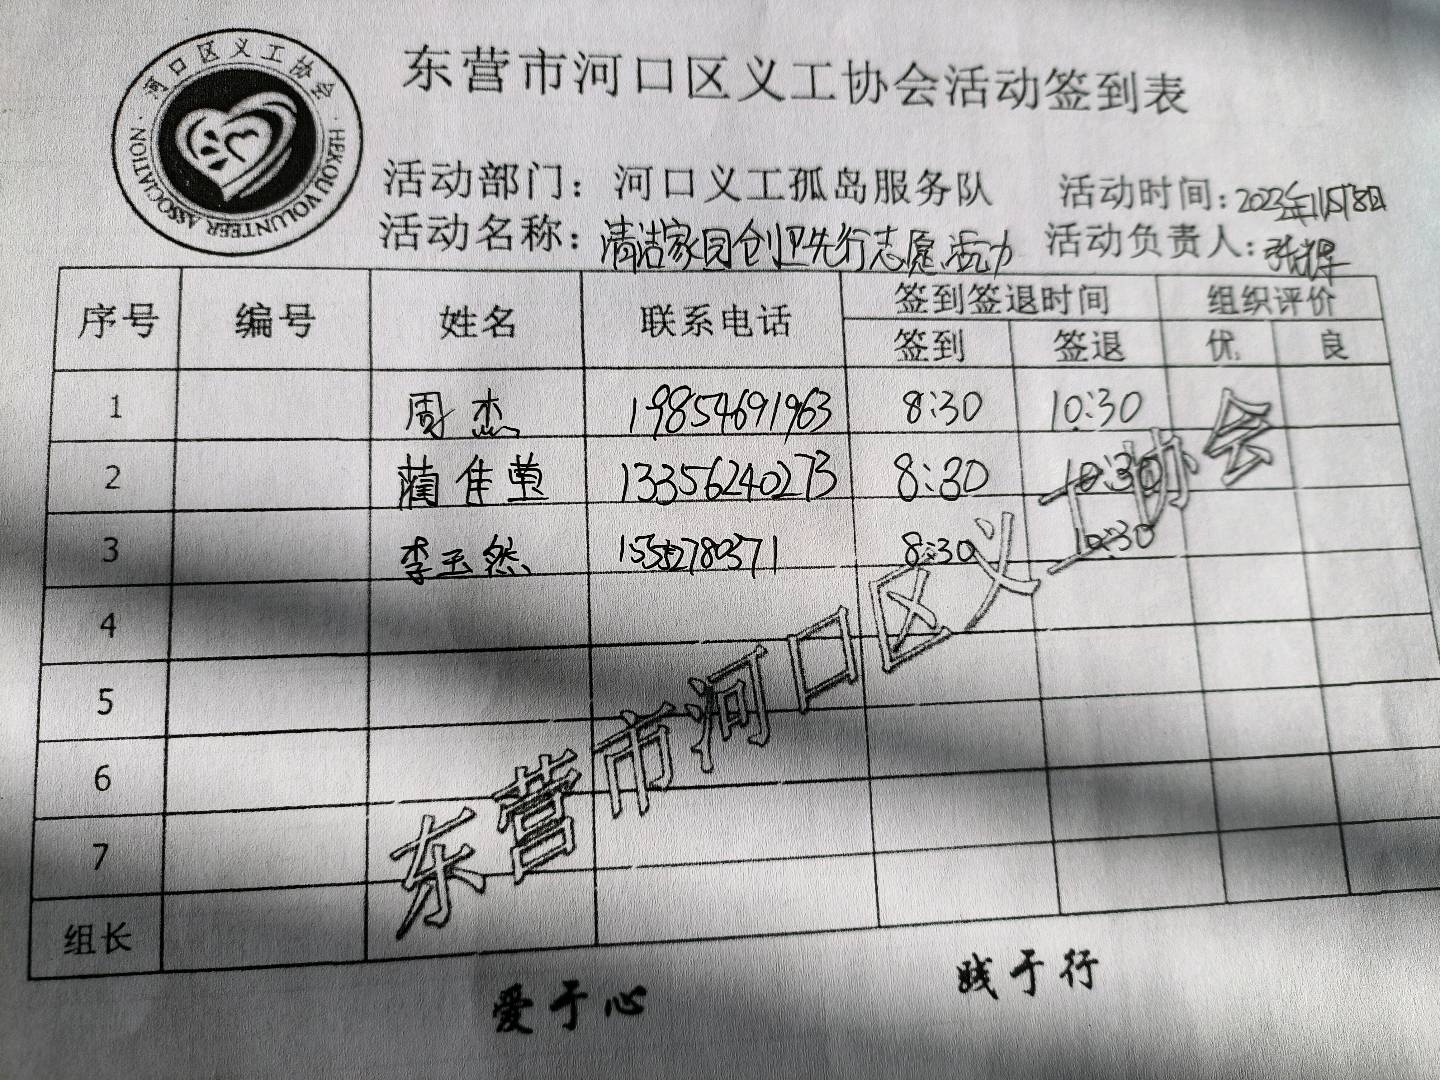 河口区义工协会
HEKOU VOLUNTEER ASSOCIATION
东营市河口区义工协会活动签到表
活动部门：河口义工孤岛服务队 活动时间：2023年11月18日
活动名称：清洁家园创卫先行志愿活动 活动负责人：
序号 编号 姓名 联系电话 签到签退时间 组织评价
签到 签退 优 良
1 周杰 19854691963 8:30 10:30
2 蔺佳莹 13356240273 8:30 10:30
3 李玉然 8:30 10:30
4
5
6
7
组长
东营市河口区义工协会
爱于心 践于行